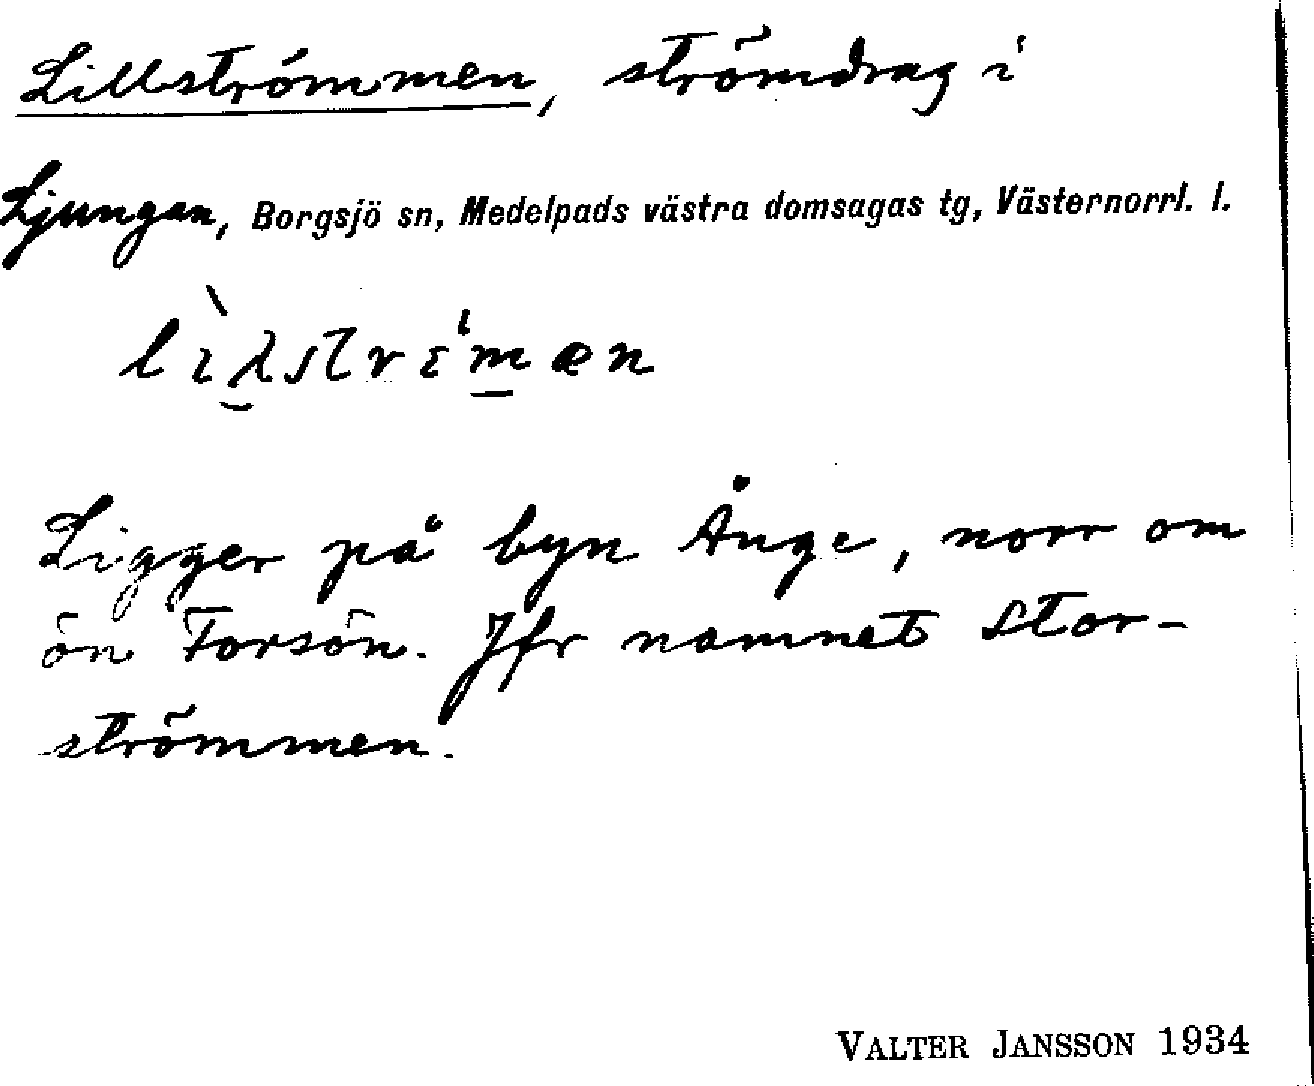 Lillströmmen, strömdrag i
Ljungan, Borgsjö sn, Medelpads västra domsagas tg, Västernorrl. l.
Ligger på byn Ånge, norr om
ön Forsön. Jfr namnet Stor-
strömmen.
VALTER JANSSON 1934